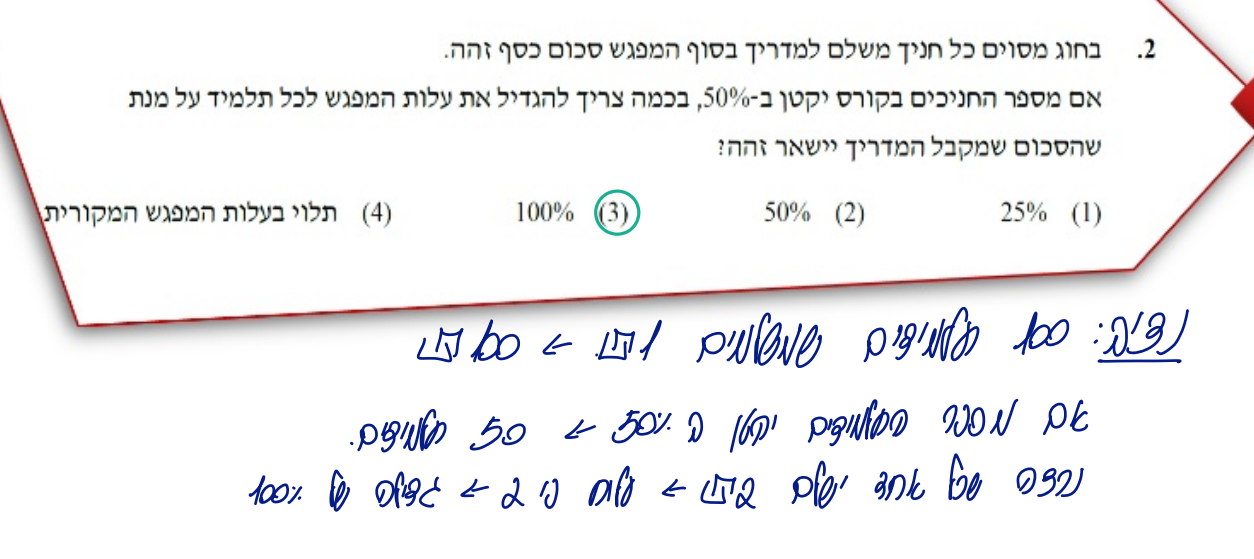 2. בחוג מסוים כל חניך משלם למדריך בסוף המפגש סכום כסף זהה.
אם מספר החניכים בקורס יקטן ב-50%, בכמה צריך להגדיל את עלות המפגש לכל תלמיד על מנת
שהסכום שמקבל המדריך יישאר זהה?
(1) 25% (2) 50% (3) 100% (4) תלוי בעלות המפגש המקורית
נציב: 100 תלמידים שמשלמים 1₪ ← 100₪
אם מספר התלמידים יקטן ב 50% ← 50 תלמידים.
נרצה שכל אחד ישלם 2₪ ← פי 2 ← גדילה של 100%